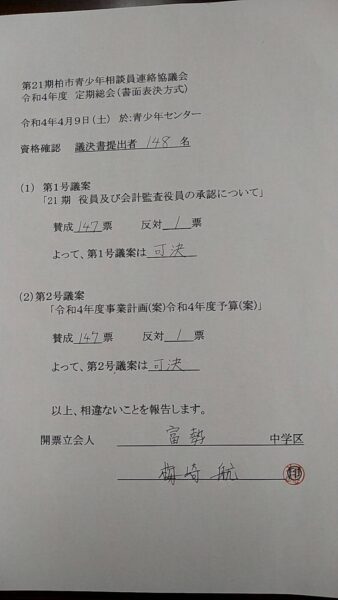 第21期柏市青少年相談員連絡協議会
令和4年度 定期総会(書面表決方式)
令和4年4月9日(土) 於:青少年センター
資格確認 議決書提出者 148 名
(1) 第1号議案
「21期 役員及び会計監査役員の承認について」
賛成 147 票 反対 1 票
よって、第1号議案は 可決
(2)第2号議案
「令和4年度事業計画(案)令和4年度予算(案)」
賛成 147 票 反対 1 票
よって、第2号議案は 可決
以上、相違ないことを報告します。
開票立会人 富勢 中学区
梅崎 航 印